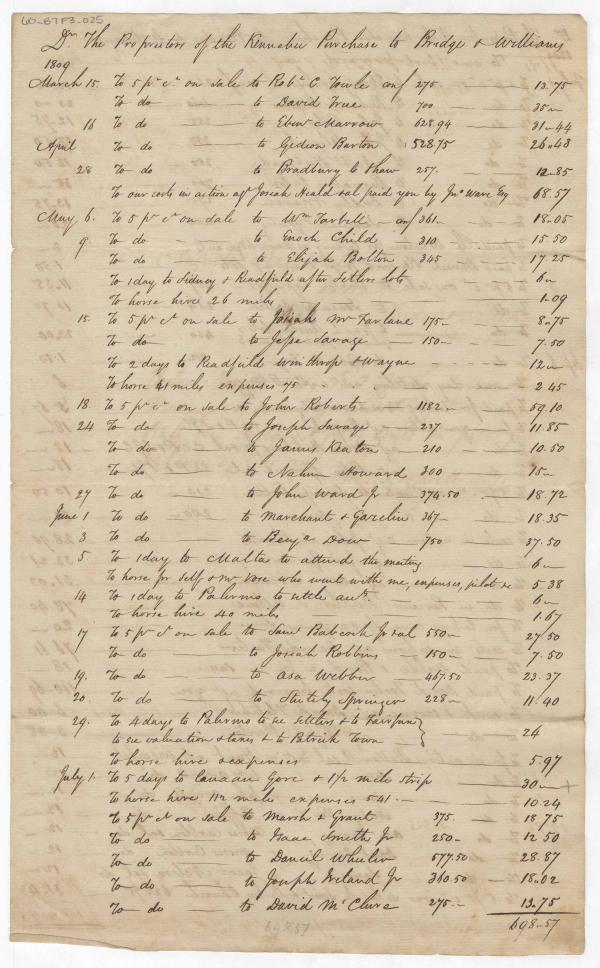 60-B7F3-025
Drs The Proprietors of the Kennebec Purchase to Bridge & Williams
1809
March 15. To 5 pr ct on sale to Robt C. Towle conf 275. — 13.75
To do — to David True 700 — 35 "
16 To do — to Ebenr Marrow 628.94 — 31.44
April To do — to Gideon Barton 528.75 26.43
28 To do — to Bradbury C Shaw 257. 12.85
To our costs in action agt Josiah Heald & al paid you by Jno Ware Esq 68.57
May 6. To 5 pr ct on sale to Wm Tarbell — conf 361. — 18.05
9 To do — to Enoch Child — 310 — 15.50
To do — to Elijah Bolton 345 17.25
To 1 day to Sidney & Readfield after Setlers lots — 6 "
To horse hire 26 miles — 1.09
15. To 5 pr ct on sale to Josiah McFarlane 175 — 8.75
To do — to Jesse Savage — 150 — 7.50
To 2 days to Readfield Winthrop & Wayne — 12 "
To horse 41 miles expenses 75 2.45
18. To 5 pr ct on sale to John Roberts — 1182 — 59.10
24 To do — to Joseph Savage — 237 11.85
To do — to James Keaton — 210 — 10.50
To do — to Nahum Howard 300 — 15 "
27 To do — to John Ward Jr — 374.50 — 18.72
June 1 To do — to Marchant & Gazelin 367 — 18.35
3 To do — to Benja Dow — 750 — 37.50
5. To 1 day to Malta to attend the meeting — 6 "
To horse for self & Mr Vose who went with me, expenses, pilot &c 5.38
14 To 1 day to Palermo to settle acts. 6 "
To horse hire 40 miles 1.67
17 To 5 pr ct on sale to Saml Babcock Jr & al 550 — 27.50
To do — to Josiah Robbins — 150 — 7.50
19. To do — to Asa Webber — 467.50 — 23.37
20 To do — to Stutely Springer 228 — 11.40
29. To 4 days to Palermo to see settlers & to Fairfax
to see valuation & taxes & to Patrick Town — 24
To horse hire & expenses — 5.97
July 1. To 5 days to Canaan Gore & 1 1/2 mile strip — 30 "
To horse hire 112 miles expenses 5.41 — 10.24
To 5 pr ct on sale to Marsh & Grant 375. — 18.75
To do — to Isaac Smith Jr 250 — 12.50
To do — to Daniel Wheeler 577.50 — 28.87
To do — to Joseph Ireland Jr 360.50 — 18.02
To do — to David McClure 275 — 13.75
698.57
69857